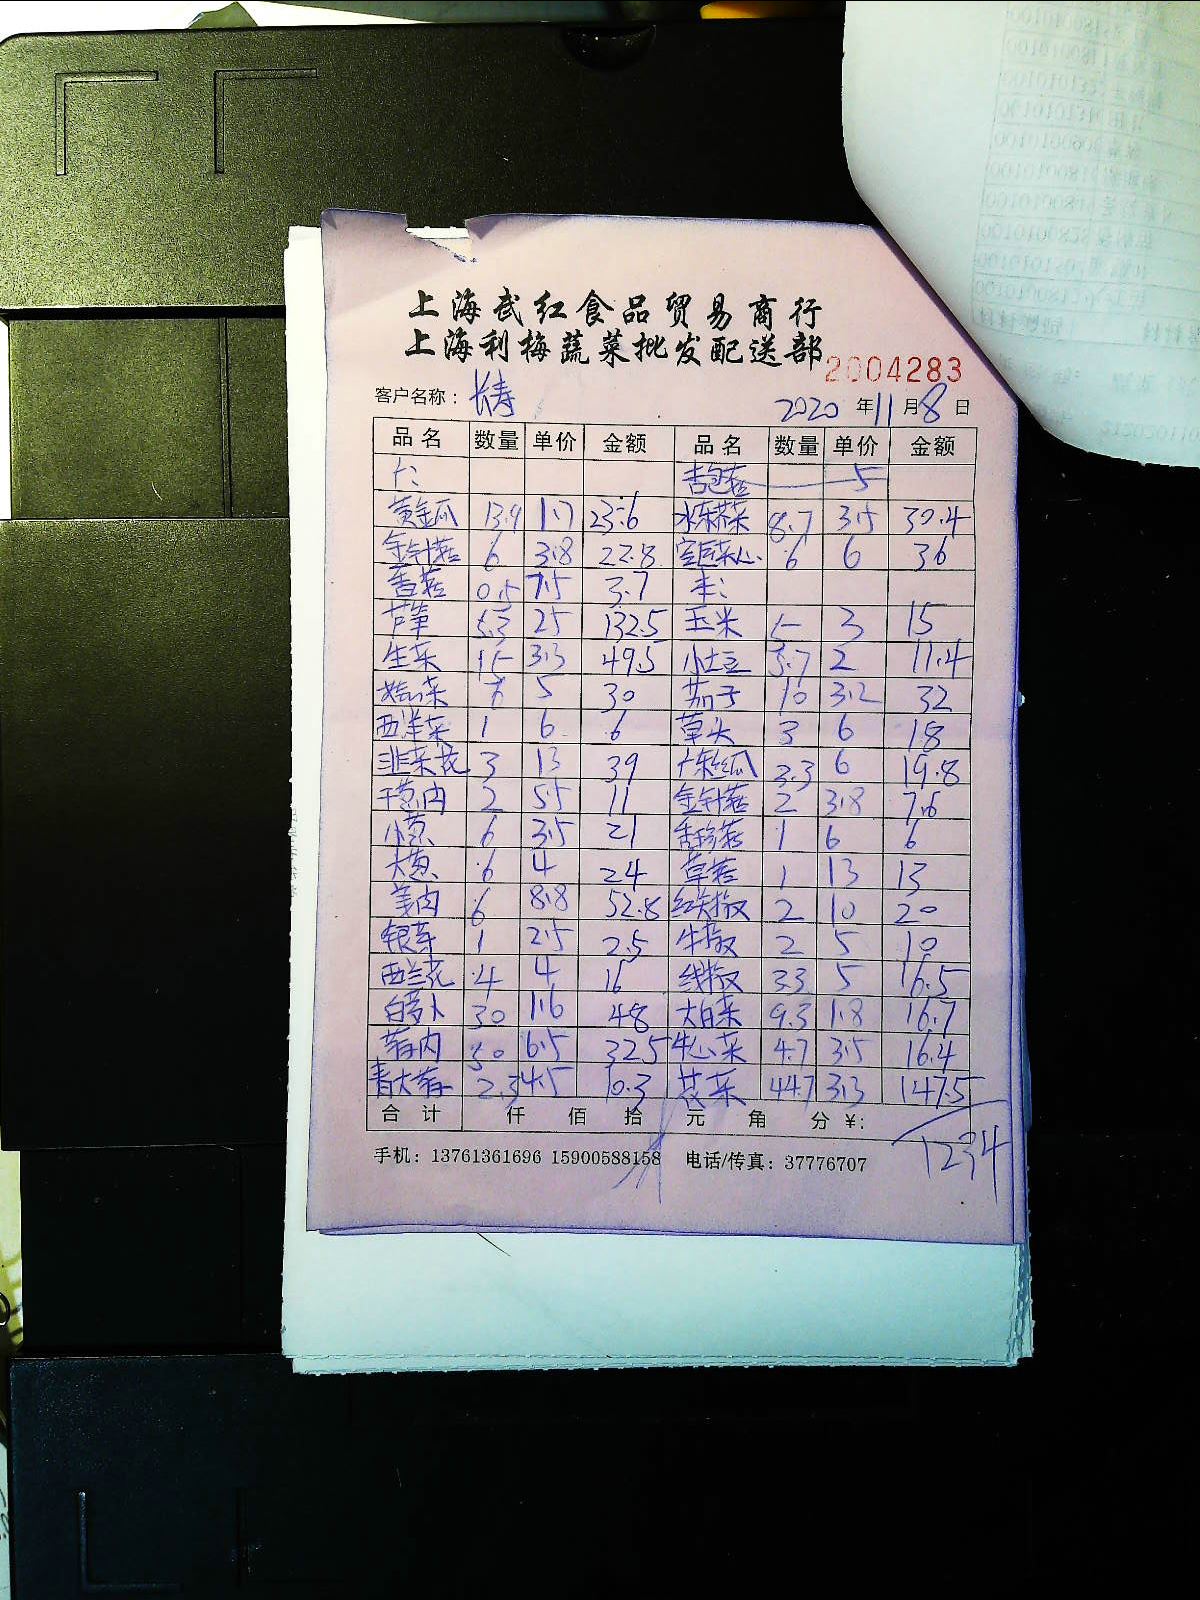 上海武红食品贸易商行
上海利梅蔬菜批发配送部
2004283
客户名称：长寿 2020年11月8日
品名 数量 单价 金额 品名 数量 单价 金额
上: 杏鲍菇 5
黄金瓜 13.9 1.7 23.6 水东芥菜 8.7 3.5 30.4
金针菇 6 3.8 22.8 菜心 6 6 36
香菇 0.5 7.5 3.7 本:
芦笋 5.3 25 132.5 玉米 5 3 15
生菜 15 3.3 49.5 小土豆 5.7 2 11.4
菜 6 5 30 茄子 10 3.2 32
西洋菜 1 6 6 草头 3 6 18
韭菜花 3 13 39 丝瓜 3.3 6 19.8
干葱肉 2 5.5 11 金针菇 2 3.8 7.6
小葱 6 3.5 21 香珍菇 1 6 6
大葱 6 4 24 草菇 1 13 13
姜肉 6 8.8 52.8 红尖椒 2 10 20
银芽 1 2.5 2.5 牛椒 2 5 10
西兰花 4 4 16 线椒 3.3 5 16.5
白萝卜 30 1.6 48 大白菜 9.3 1.8 16.7
蒜肉 50 6.5 32.5 牛心菜 4.7 3.5 16.4
青大蒜 2.3 4.5 10.3 花菜 44.7 3.3 147.5
合计 仟 佰 拾 元 角 分 ¥: 1234
手机：13761361696 15900588158 电话/传真：37776707